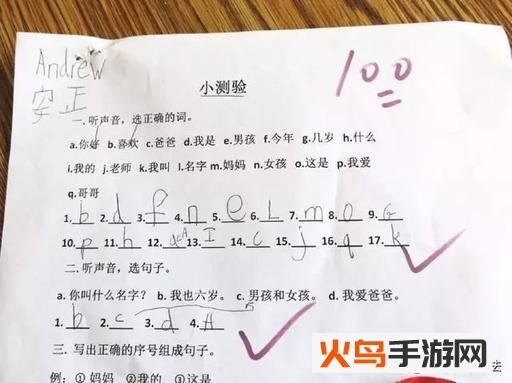 Andrew
安正
100
小测验
一.听声音，选正确的词。
a.你好 b.喜欢 c.爸爸 d.我是 e.男孩 f.今年 g.几岁 h.什么
i.我的 j.老师 k.我叫 l.名字 m.妈妈 n.女孩 o.这是 p.我爱
q.哥哥
1. b 2. d 3. f 4. n 5. e 6. L 7. m 8. o 9. G
10. p 11. h 12. a 13. I 14. c 15. j 16. q 17. k
二.听声音，选句子。
a.你叫什么名字？ b.我也六岁。 c.男孩和女孩。 d.我爱爸爸。
1. b 2. c 3. d 4. A
三.写出正确的序号组成句子。
例：①妈妈 ②我的 ③这是
去
火鸟手游网